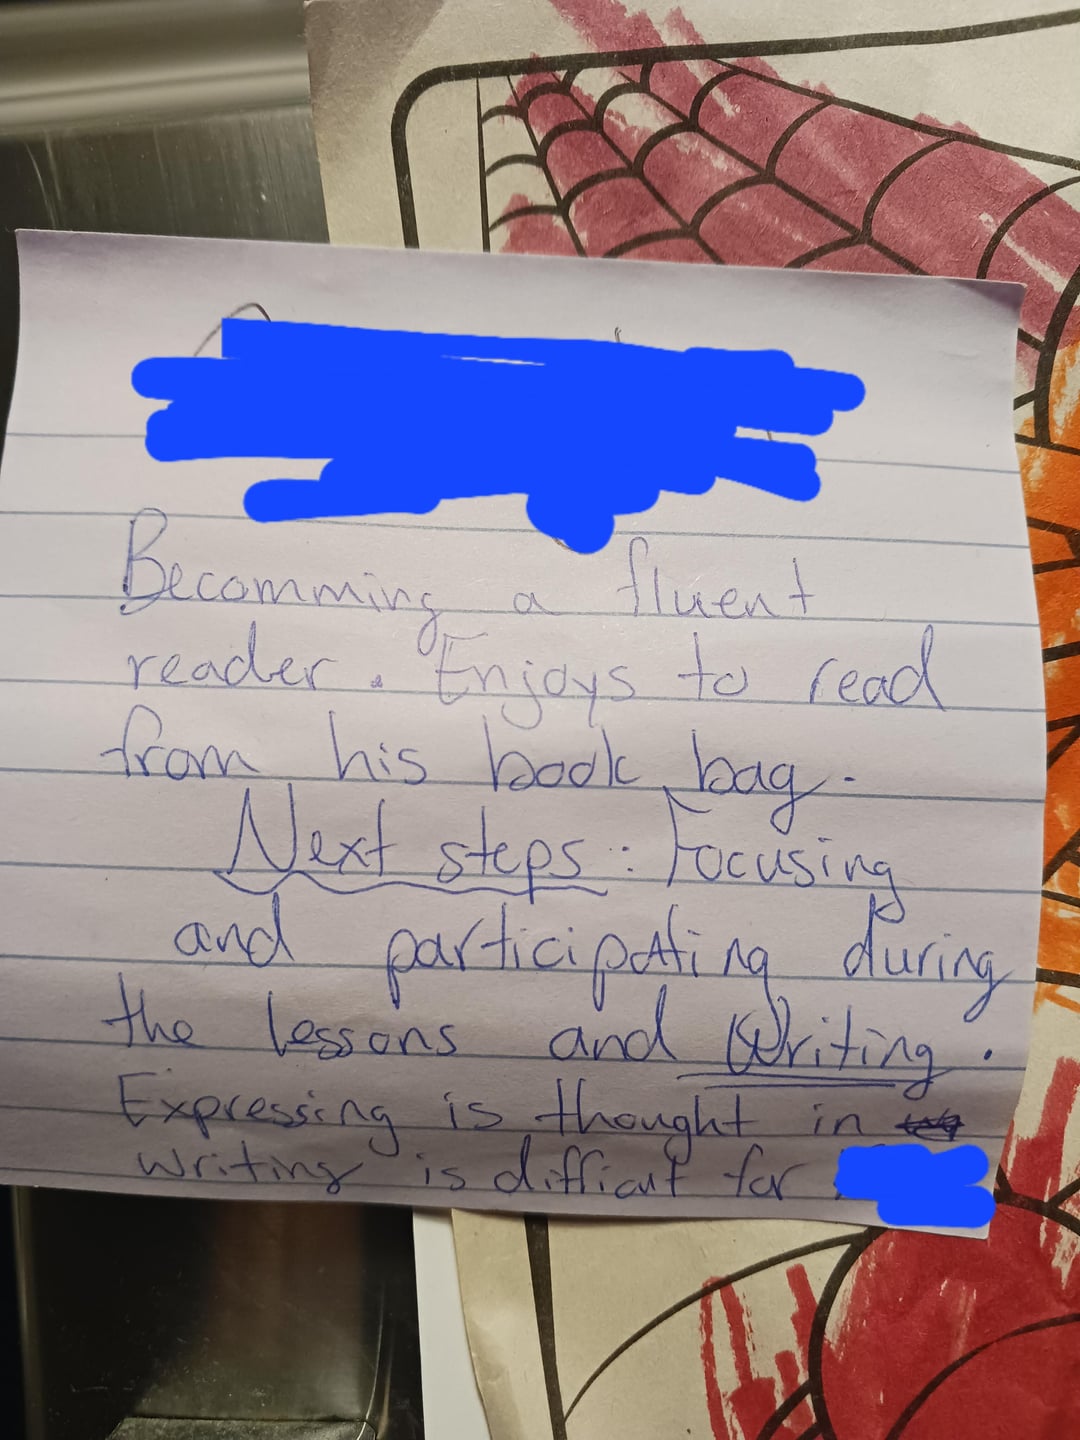 Becomming a fluent
reader. Enjoys to read
from his book bag.
Next steps: Focusing
and participating during
the lessons and Writing.
Expressing is thought in
writing is difficut for